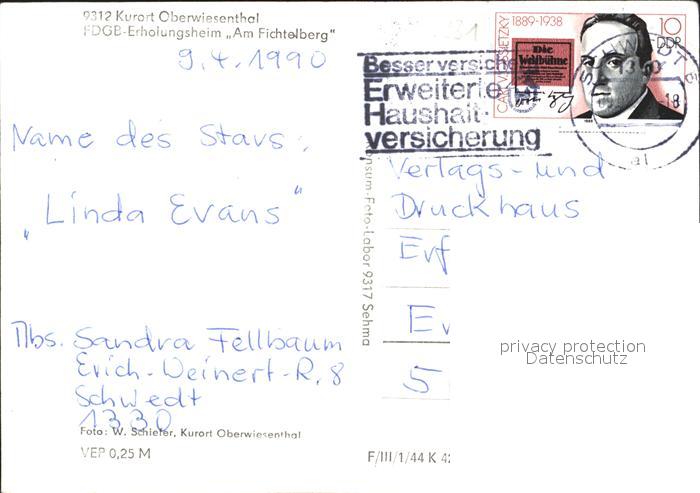 9312 Kurort Oberwiesenthal
FDGB-Erholungsheim „Am Fichtelberg“
9.4.1990
Name des Stars:
„Linda Evans“
Abs. Sandra Fellbaum
Erich-Weinert-R. 8
Schwedt
1330
Foto: W. Schiefer, Kurort Oberwiesenthal
VEP 0,25 M
onsum-Foto-Labor 9317 Sehma
CARL V. OSSIETZKY 1889-1938
Die
Weltbühne
10
DDR
Besser versiche
Erweiterte
Haushalt-
versicherung
Verlags- und
Druckhaus
Erf
Ev
5
F/III/1/44 K 42
privacy protection
Datenschutz